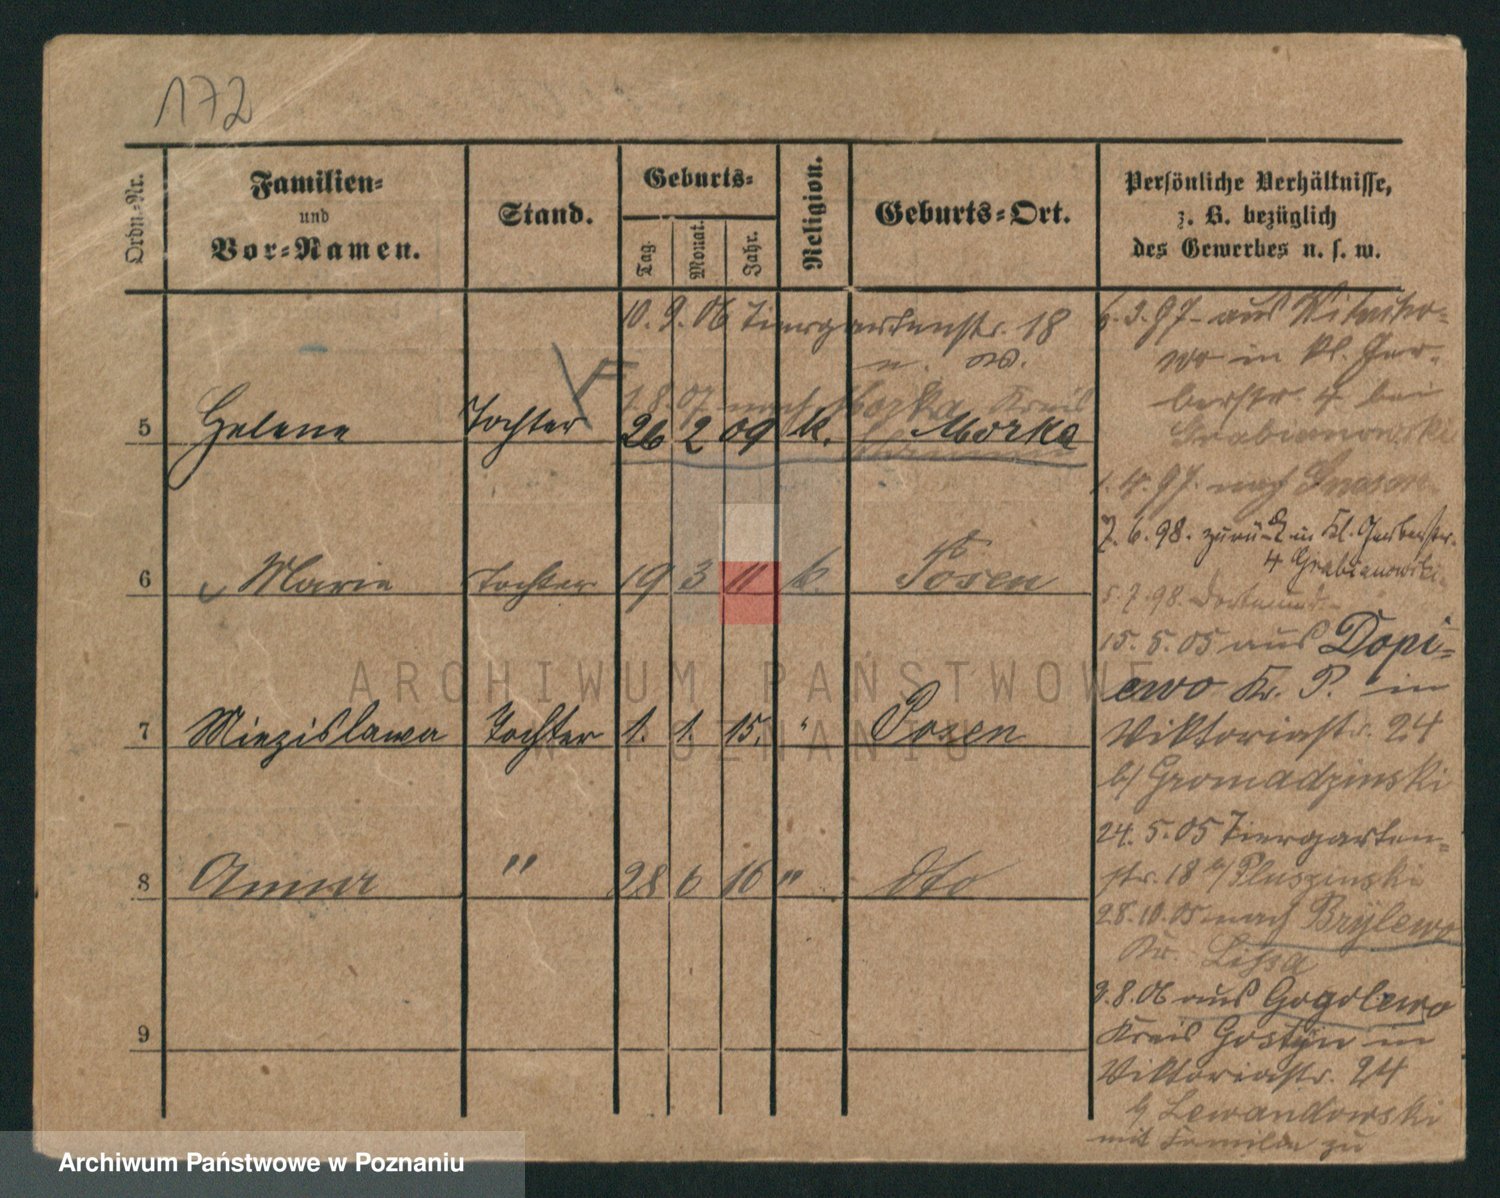 172
Ordn.-Nr.
Familien-
und
Vor-Namen.
Stand.
Geburts-
Tag.
Monat.
Jahr.
Religion.
Geburts-Ort.
Persönliche Verhältnisse,
z. B. bezüglich
des Gewerbes u. s. w.
10. 9. 06 Tiergartenstr. 18
1. 8. 07 nach Morka Kreis
5 Helene Tochter 26 2 09 k. Morka
6 Marie Tochter 19 3 11 k. Posen
7 Miezislawa Tochter 1. 1. 15. " Posen
8 Anna " 28 6 16 " dto
9
6. 3. 97 aus Witkowo
in Kl. Ger-
berstr. 4 bei
Grabianowski
1. 4. 97 nach Gnesen
7. 6. 98. zurück in Kl. Gerberstr.
4 Grabianowski
5. 7. 98. Dortmund
15. 5. 05 aus Dopi-
ewo Kr. P. in
Viktoriastr. 24
b/ Gromadzinski
24. 5. 05 Tiergarten-
str. 18 b/ Pluszinski
28. 10. 05 nach Brylewo
Kr. Lissa
9. 8. 06 aus Gogolewo
Kreis Gostyn in
Viktoriastr. 24
b/ Lewandowski
mit Familie zu
ARCHIWUM PAŃSTWOWE
W POZNANIU
Archiwum Państwowe w Poznaniu